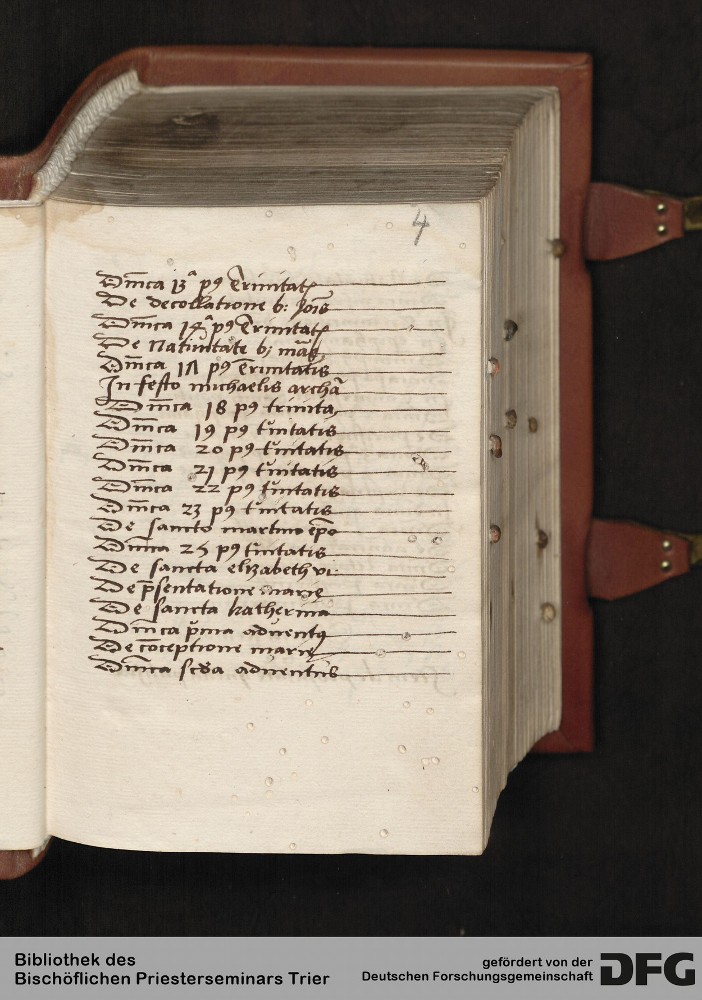 4
Dm̄ca 13ᵃ pꝰ Trinitatꝭ
De decollatione b: Joīs
Dm̄ca 14ᵃ pꝰ Trinitatꝭ
De Natiuitate b;
Dm̄ca 17 pꝰ Trinitatis
In festo michaelis archā
Dm̄ca 18 pꝰ trinita
Dm̄ca 19 pꝰ tⁱnitatis
Dm̄ca 20 pꝰ tⁱnitatis
Dm̄ca 21 pꝰ tⁱnitatis
Dm̄ca 22 pꝰ tⁱnitatis
Dm̄ca 23 pꝰ tⁱnitatis
De sancto martino ep̄o
Dm̄ca 25 pꝰ tⁱnitatis
De sancta elizabeth vi:
De p̄sentatione marie
De sancta katherina
Dm̄ca p̄ma aduentꝰ
De cōceptione marie
Dm̄ca scd̄a aduentus
Bibliothek des
Bischöflichen Priesterseminars Trier
gefördert von der
Deutschen Forschungsgemeinschaft
DFG